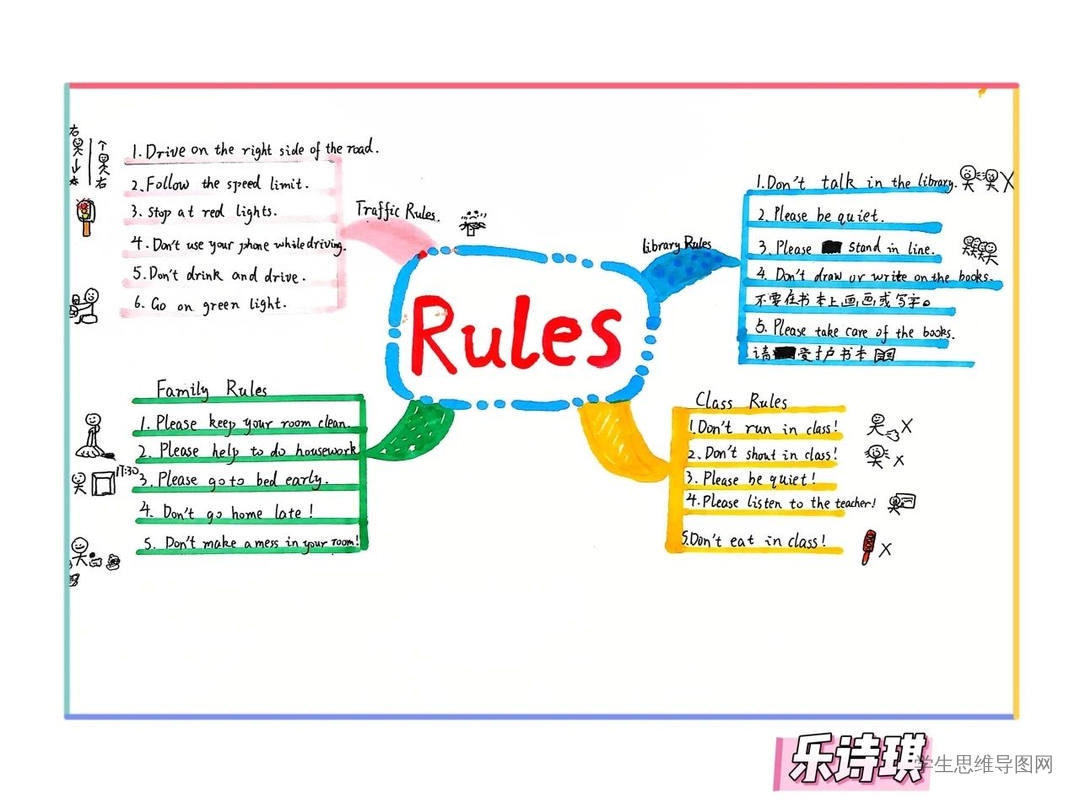 Rules
Traffic Rules.
1. Drive on the right side of the road.
2. Follow the speed limit.
3. Stop at red lights.
4. Don't use your phone while driving.
5. Don't drink and drive.
6. Go on green light.
右
个
右
Library Rules
1. Don't talk in the library.
2. Please be quiet.
3. Please stand in line.
4. Don't draw or write on the books.
不要在书本上画画或写字。
5. Please take care of the books.
请爱护书本
Family Rules
1. Please keep your room clean.
2. Please help to do housework
3. Please go to bed early.
4. Don't go home late!
5. Don't make a mess in your room!
Class Rules
1. Don't run in class!
2. Don't shout in class!
3. Please be quiet!
4. Please listen to the teacher!
5. Don't eat in class!
乐诗琪
学生思维导图网